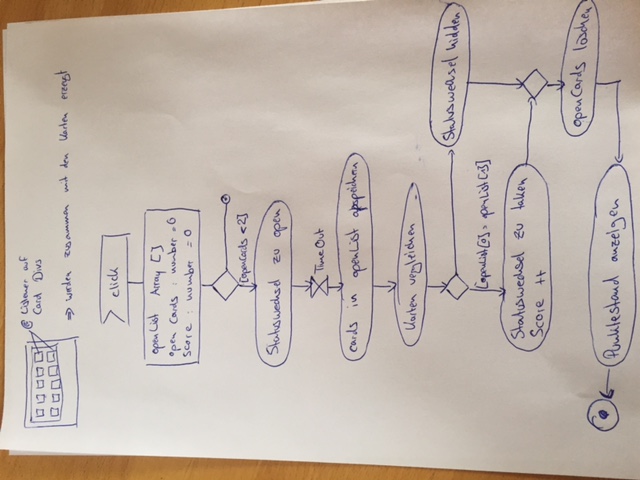 @ Listener auf
Card Divs
⇒ werden zusammen mit den Karten erzeugt
click
openList Array []
open Cards : number = 0
Score : number = 0
[openCards < 2]
Statuswechsel zu open
TimeOut
cards in openList abspeichern
Karten vergleichen
Statuswechsel hidden
[openList[0] = openList[1]]
Statuswechsel zu taken
Score ++
openCards löschen
Punktestand anzeigen